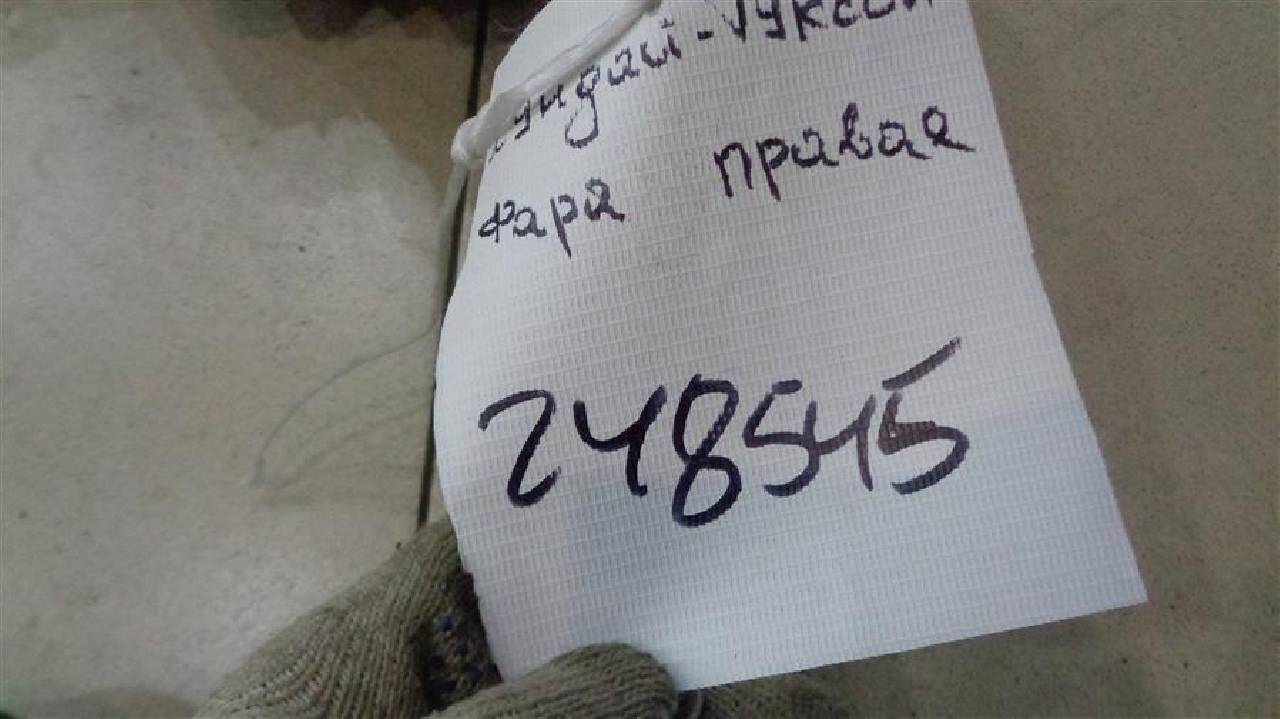 хундай-Туксон
фара правая
248545